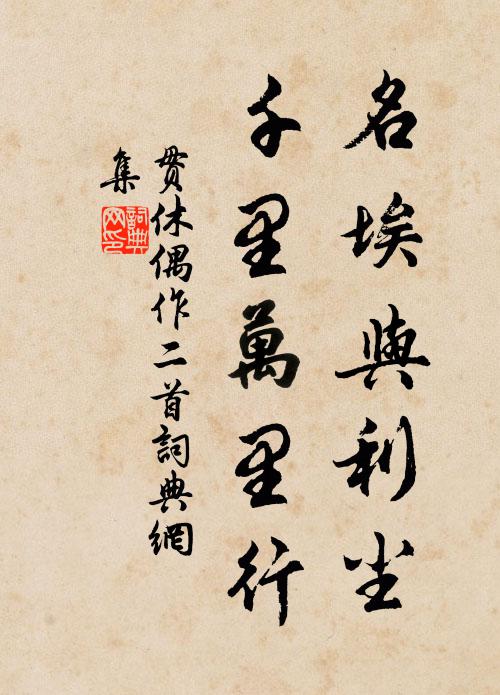 名埃與利尘
千里萬里行
貫休偶作二首詞典網
集
詞典
网印